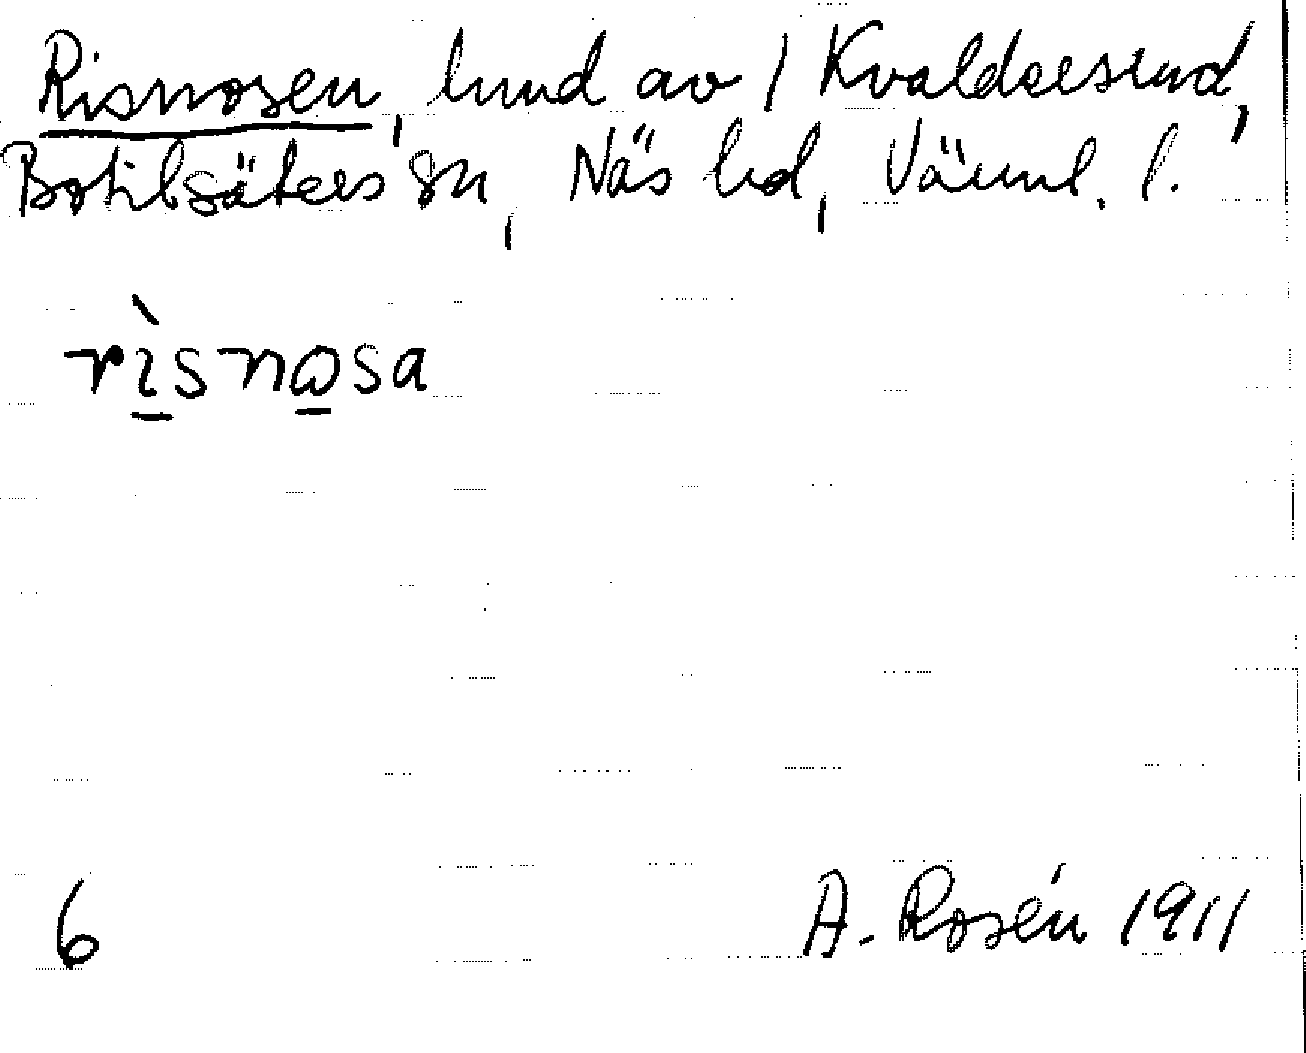 Risnosen, lund av / Kvaldersund,
Botilsäters sn, Näs hd, Värml. l.
rìsnosa
6 A. Rosén 1911